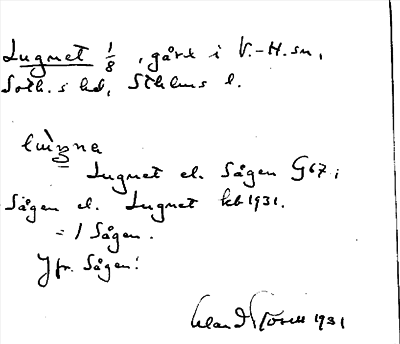 Lugnet 1/8, gård i V.-H. sn,
Soth.s hd, Sthlms l.
lùŋna
Lugnet el. Sågen G67;
Sågen el. Lugnet kb 1931.
= 1 Sågen.
Jfr. Sågen!
1931